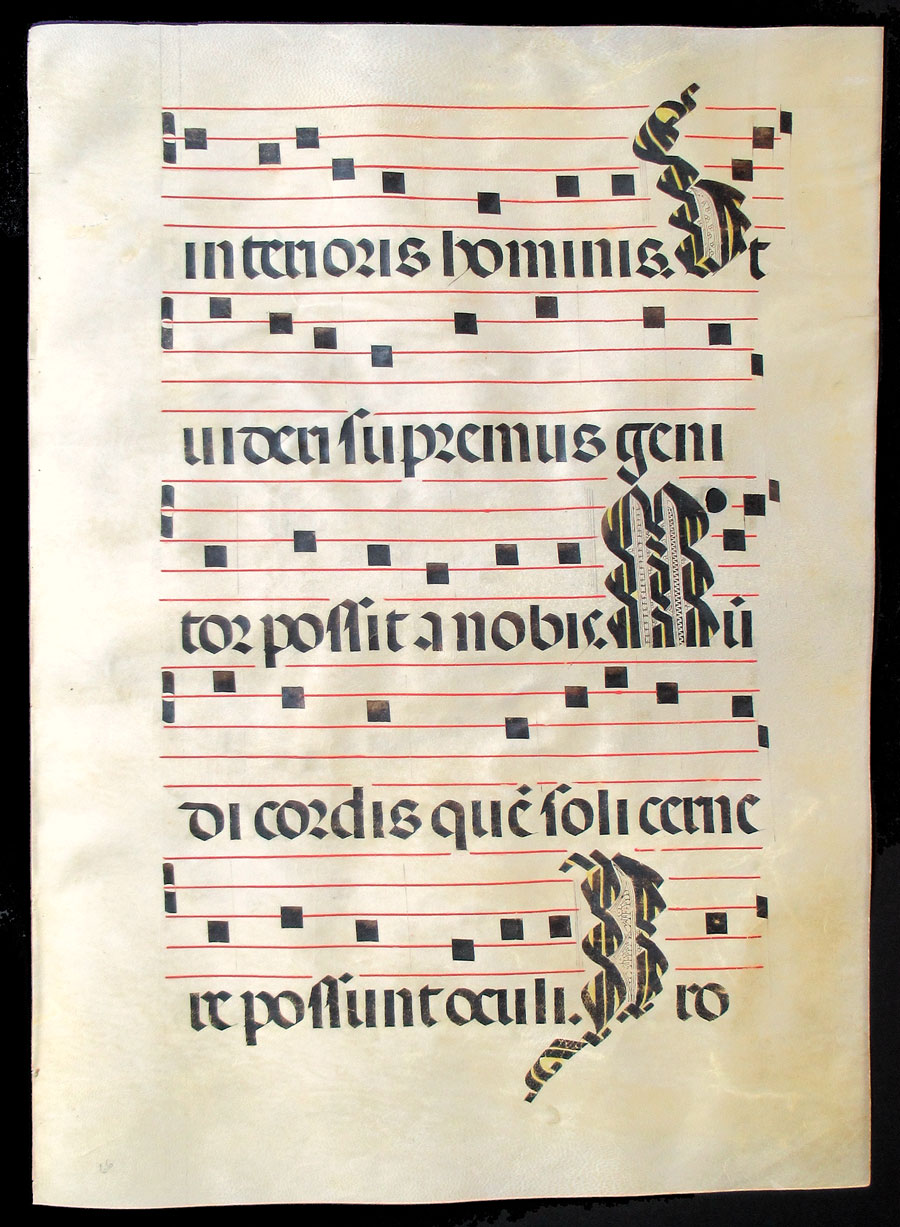 interioris hominis. Ut
uideri supremus geni
tor possit a nobis. Mū
di cordis quē soli cerne
re possunt oculi. Pro